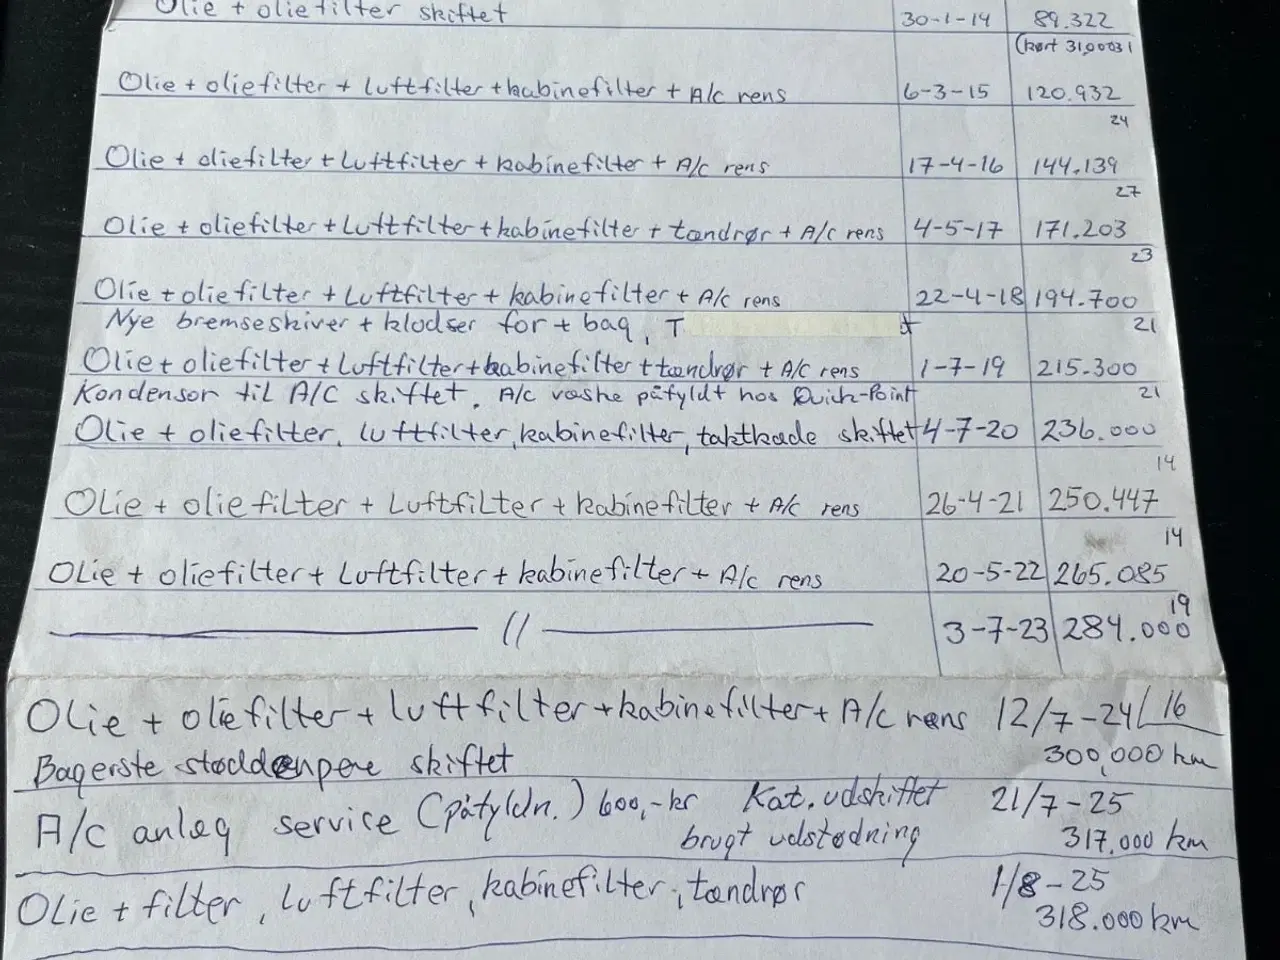 Olie + oliefilter skiftet 30-1-14 89.322
(kørt 31,000
Olie + oliefilter + luftfilter + kabinefilter + A/c rens 6-3-15 120.932
24
Olie + oliefilter + Luftfilter + kabinefilter + A/c rens 17-4-16 144.139
27
Olie + oliefilter + Luftfilter + kabinefilter + tændrør + A/c rens 4-5-17 171.203
23
Olie + oliefilter + Luftfilter + kabinefilter + A/c rens 22-4-18 194.700
Nye bremseskiver + klodser for + bag, T 21
Olie + oliefilter + Luftfilter + kabinefilter + tændrør + A/c rens 1-7-19 215.300
Kondensor til A/C skiftet. A/c væske påfyldt hos Quick-Point 21
Olie + oliefilter, luftfilter, kabinefilter, taktkæde skiftet 4-7-20 236.000
14
Olie + oliefilter + Luftfilter + kabinefilter + A/c rens 26-4-21 250.447
14
Olie + oliefilter + Luftfilter + kabinefilter + A/c rens 20-5-22 265.085
19
— // — 3-7-23 284.000
Olie + oliefilter + luftfilter + kabinefilter + A/c rens 12/7-24 16
Bagerste støddæmpere skiftet 300,000 km
A/c anlæg service (påfyldn.) 600,- kr Kat. udskiftet 21/7-25
brugt udstødning 317.000 km
Olie + filter, luftfilter, kabinefilter, tændrør 1/8-25
318.000 km